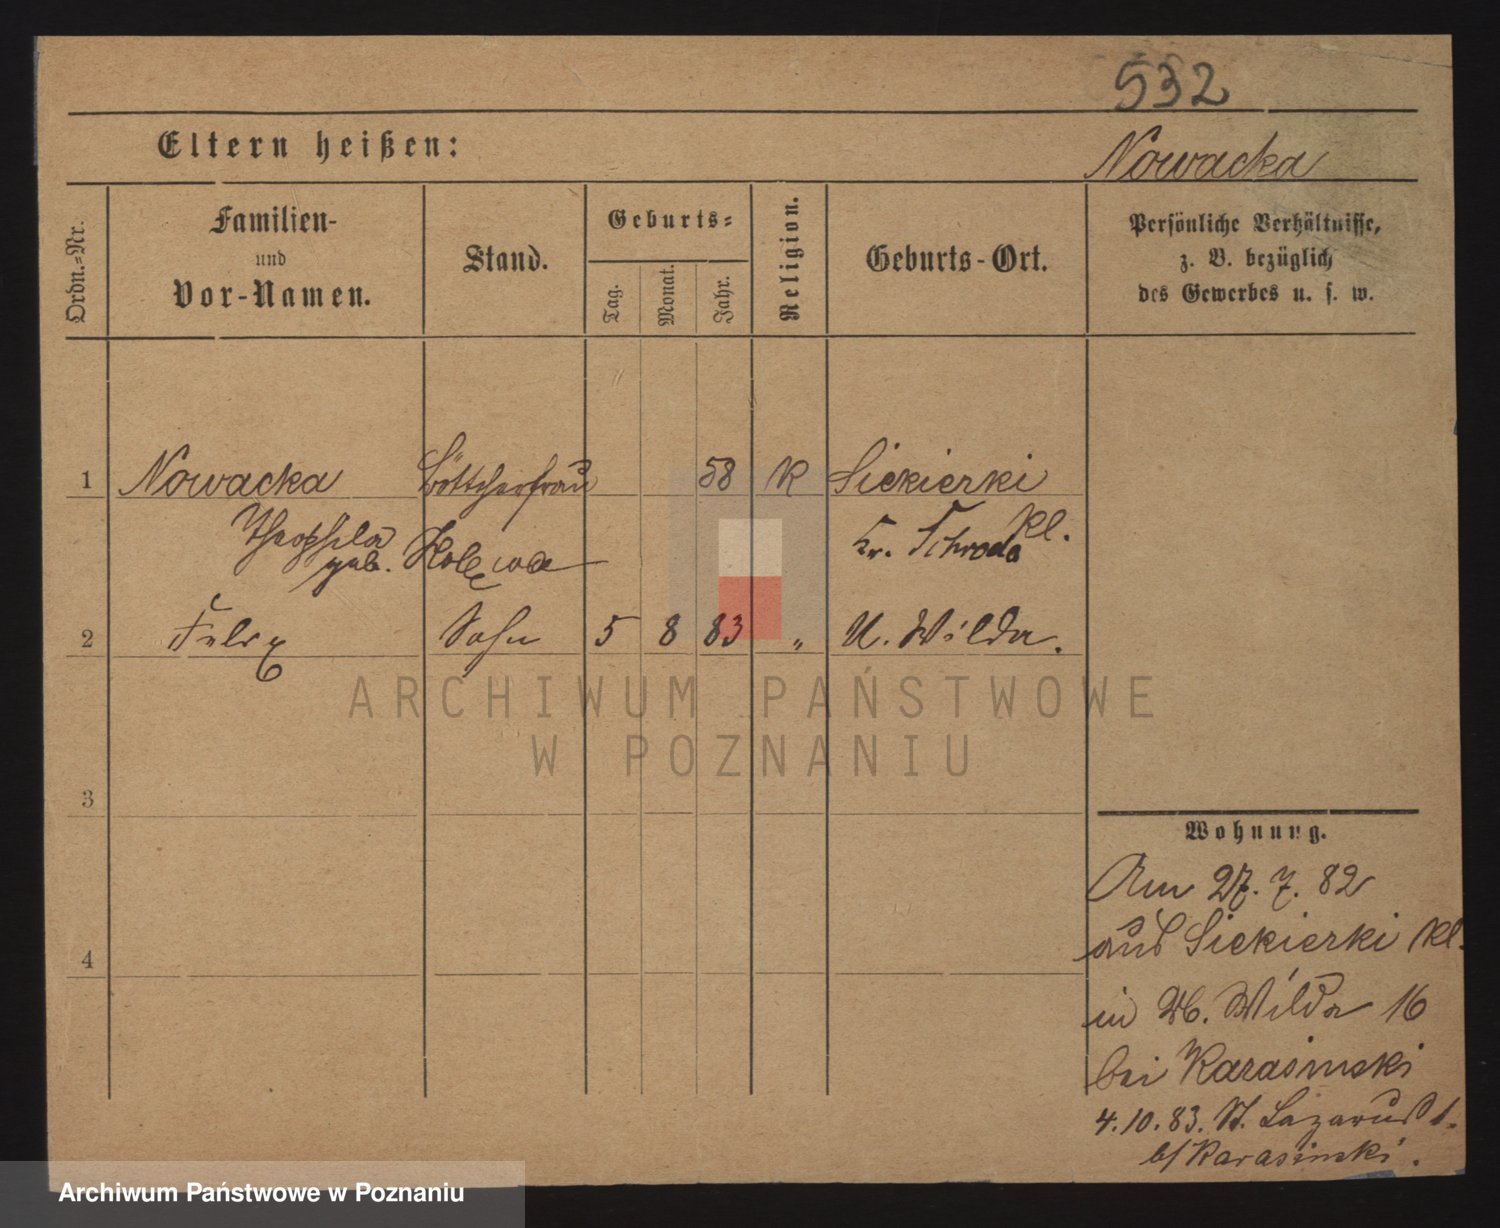 532
Eltern heißen:
Nowacka
Ordn.=Nr.
Familien-
und
Vor-Namen.
Stand.
Geburts=
Tag.
Monat.
Jahr.
Religion.
Geburts-Ort.
Persönliche Verhältnisse,
z. B. bezüglich
des Gewerbes u. s. w.
1 Nowacka Böttcherfrau 58 K Siekierki
Theophila Kl.
geb. Kr. Schroda
2 Felix Sohn 5 8 83 " U. Wilda.
ARCHIWUM PAŃSTWOWE
W POZNANIU
3
4
Wohnung.
Am 27. 7. 82
aus Siekierki Kl.
in Wilda 16
bei Karasinski
4.10.83. St. Lazarus 1.
b/Karasinski.
Archiwum Państwowe w Poznaniu